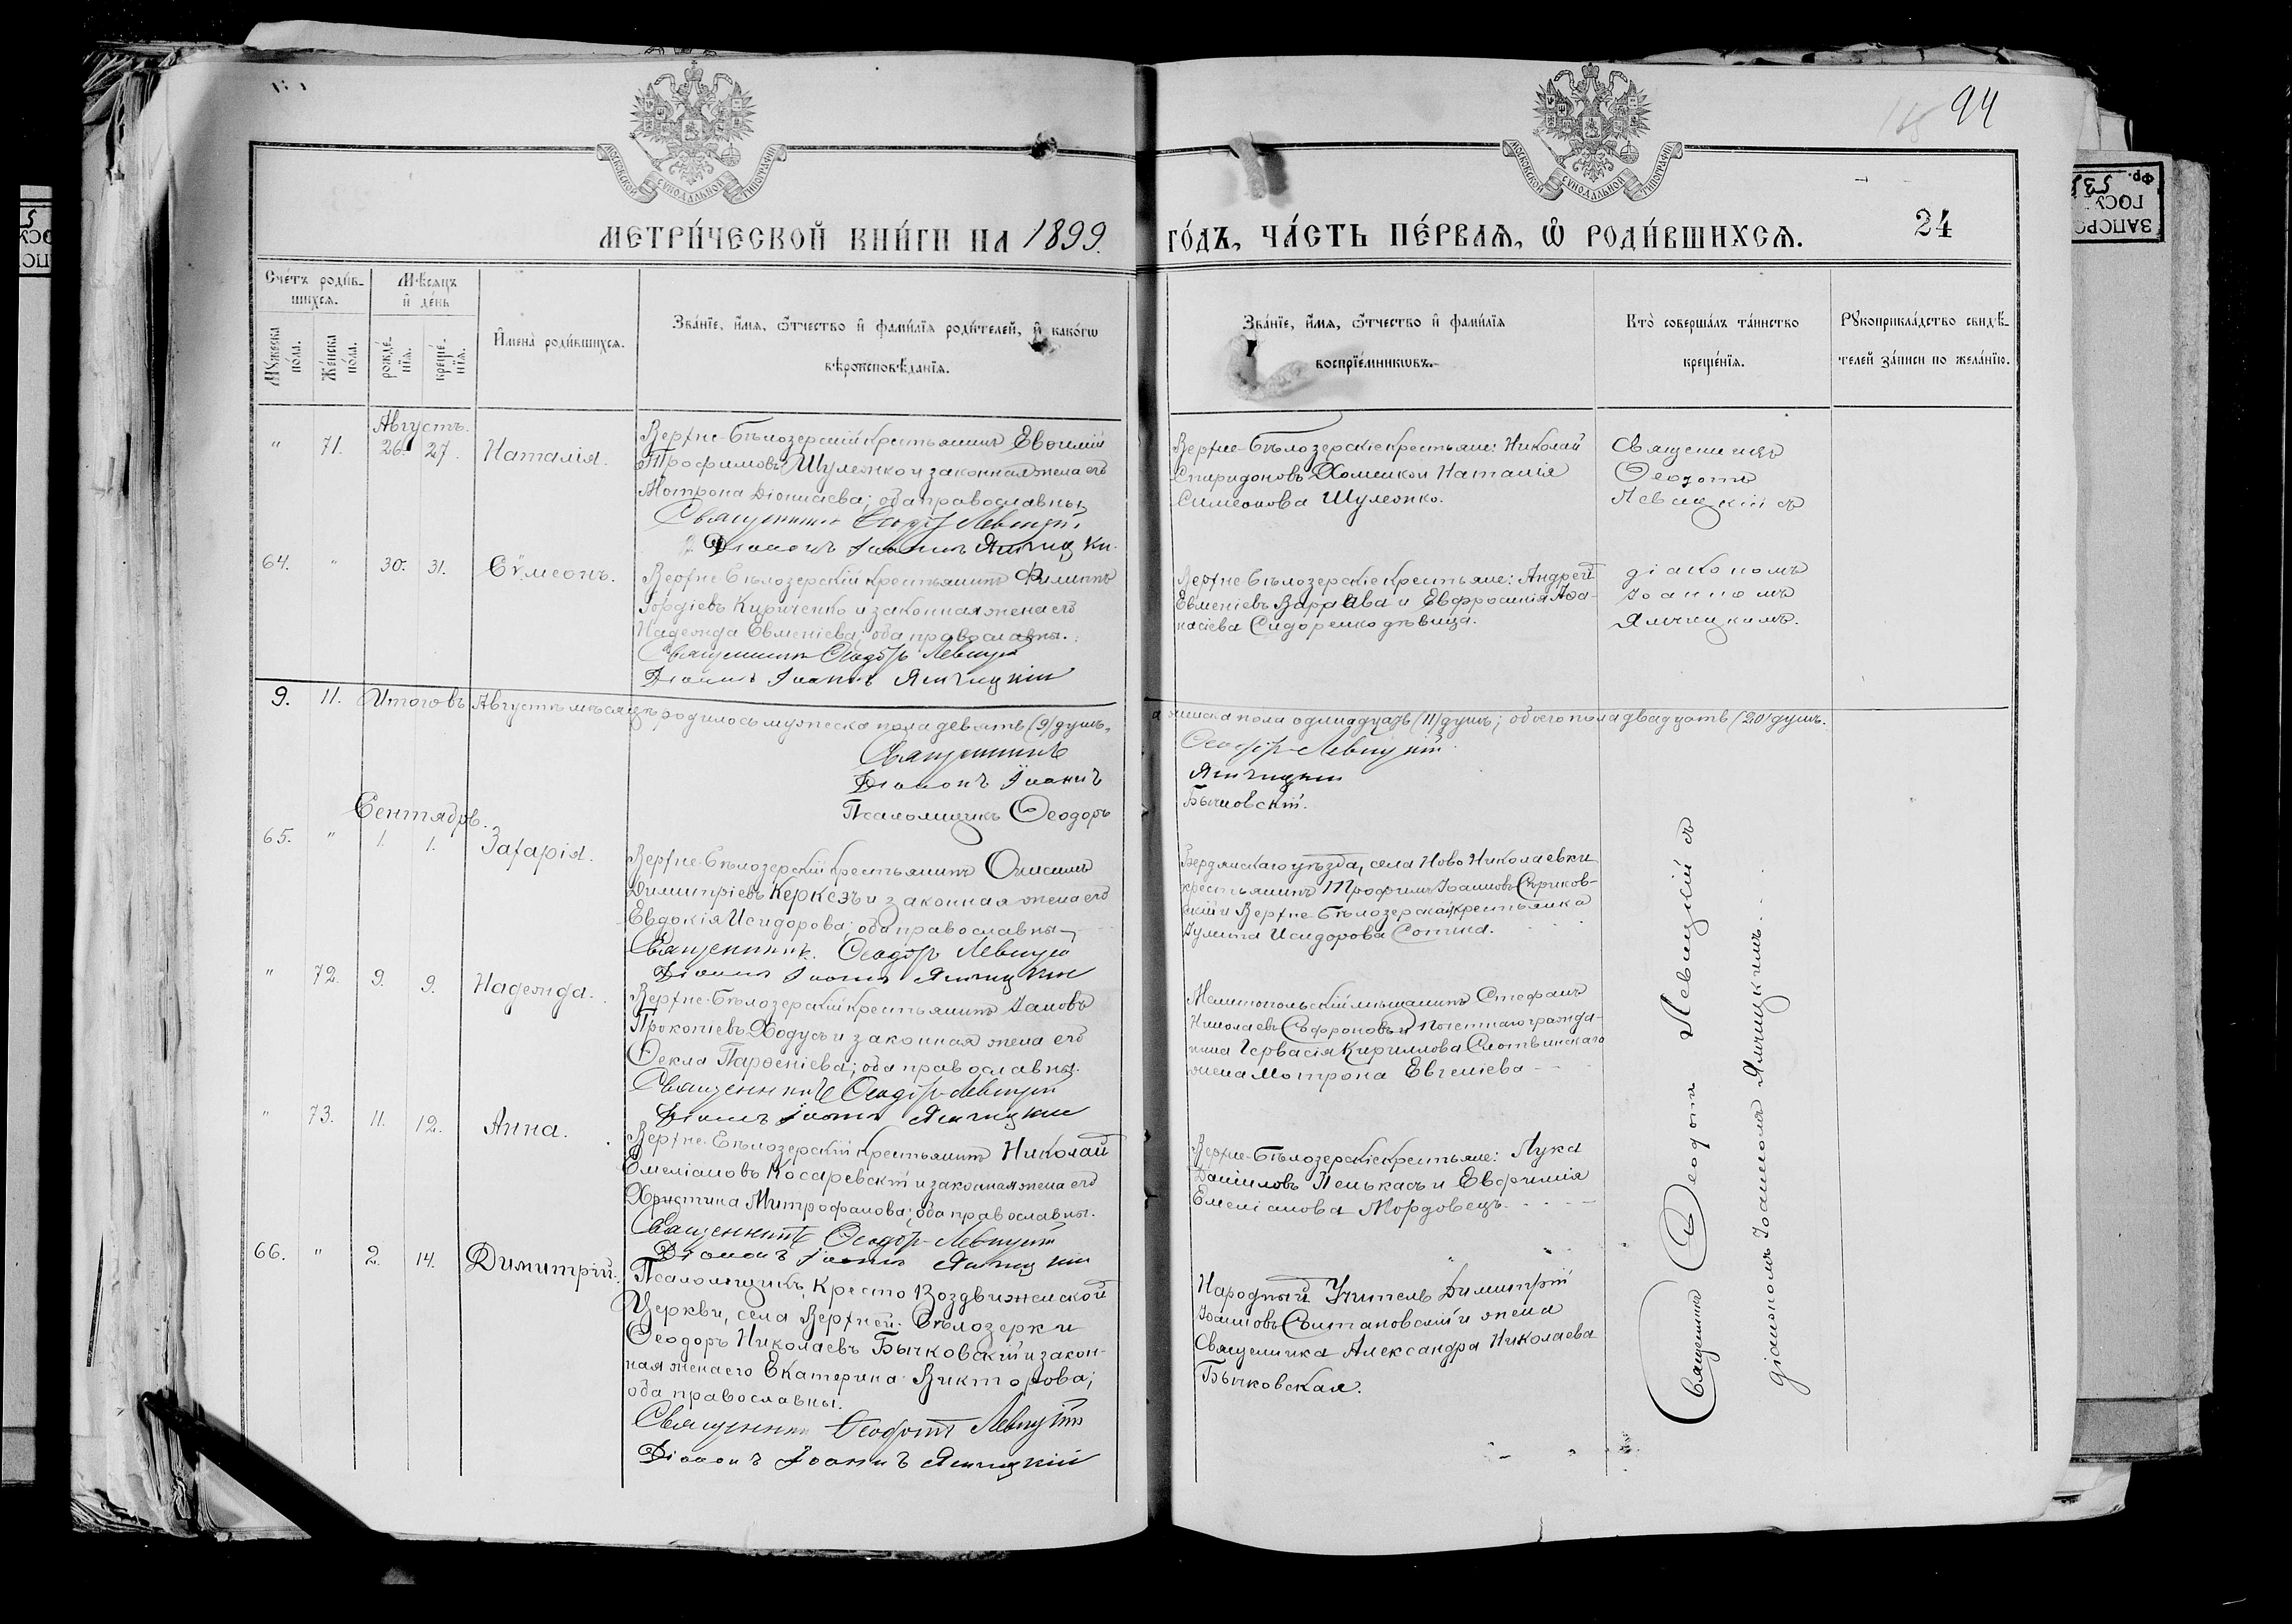 94
МОСКОВСКОЙ СѴНОДАЛЬНОЙ ТИПОГРАФІИ
МОСКОВСКОЙ СѴНОДАЛЬНОЙ ТИПОГРАФІИ
МЕТРИ́ЧЕСКОЙ КНИ́ГИ НА 1899.
ГО́ДЪ, ЧА́СТЬ ПЕ́РВАѦ, Ѡ҆ РОДИ́ВШИХСѦ.
24
Сче́тъ роди́в-
шихсѧ.
Мꙋ́жеска по́ла.
Же́нска по́ла.
Мѣ́сяцъ
и҆ де́нь
рожде́-
нїѧ.
креще́-
нїѧ.
И҆мена̀ роди́вшихсѧ.
Зва́нїе, и҆́мѧ, ѻ҆́тчество и҆ фами́лїѧ роди́телей, и҆ како́гѡ
вѣроисповѣ́данїѧ.
Зва́нїе, и҆́мѧ, ѻ҆́тчество и҆ фами́лїѧ
воспрїе́мникѡвъ.
Кто̀ соверша́лъ та́инство
креще́нїѧ.
Рꙋкоприкла́дство свидѣ́-
телей за́писи по жела́нїю.
Августъ.
" 71. 26. 27. Наталія.
Верхне-Бѣлозерскій крестьянинъ Евѳимій
Трофимовъ Шулежко и законная жена его
Мотрона Діонисіева; оба православны
Священникъ Ѳеодотъ Левицкій
Діаконъ Іоаннъ Яличицкій
Верхне-Бѣлозерскіе крестьяне: Николай
Спиридоновъ Хоменко и Наталія
Симеонова Шулежко.
Священникъ
Ѳеодотъ
Левицкій съ
64. " 30. 31. Сѵмеонъ.
Верхне-Бѣлозерскій крестьянинъ Филиппъ
Гордіевъ Кириченко и законная жена его
Надежда Евменіева; оба православны.
Священникъ Ѳеодотъ Левицкій
Діаконъ Іоаннъ Яличицкій
Верхне-Бѣлозерскіе крестьяне: Андрей
Евменіевъ Варавва и Евфросинія Аѳа-
насіева Сидоренко дѣвица.
діакономъ
Іоанномъ
Яличицкимъ.
9. 11. Итого въ Августѣ мѣсяцѣ родилось мужеска пола девять (9) душъ,
а женска пола одинадцать (11) душъ; обоего пола двадцать (20) душъ.
Священникъ Ѳеодотъ Левицкій
Діаконъ Іоаннъ Яличицкій
Псаломщикъ Ѳеодоръ Бычковскій.
Сентябрь.
65. " 1. 1. Захарія.
Верхне-Бѣлозерскій крестьянинъ Онисимъ
Димитріевъ Керкезъ и законная жена его
Евдокія Исидорова; оба православны
Священникъ Ѳеодотъ Левицкій
Діаконъ Іоаннъ Яличицкій
Бердянскаго уѣзда, села Ново Николаевки
крестьянинъ Трофимъ Іоанновъ
и Верхне-Бѣлозерская крестьянка
Іулита Исидорова Сотина.
" 72. 9. 9. Надежда.
Верхне-Бѣлозерскій крестьянинъ Іаковъ
Прокопіевъ Ходусъ и законная жена его
Ѳекла Парѳеніева; оба православны.
Священникъ Ѳеодотъ Левицкій
Діаконъ Іоаннъ Яличицкій
Мелитопольскій мѣщанинъ Стефанъ
Николаевъ Сафроновъ и почетнаго гражда-
нина Гервасія Кириллова Слотвинскаго
жена Мотрона Евгеніева
" 73. 11. 12. Анна.
Верхне-Бѣлозерскій крестьянинъ Николай
Емеліановъ Косаревскій и законная жена его
Христина Митрофанова; оба православны.
Священникъ Ѳеодотъ Левицкій
Діаконъ Іоаннъ Яличицкій
Верхне-Бѣлозерскіе крестьяне: Лука
Даніиловъ Пенькасъ и Евфимія
Емеліанова Мордовецъ.
66. " 2. 14. Димитрій.
Псаломщикъ Кресто Воздвиженской
Церкви, села Верхней-Бѣлозерки
Ѳеодоръ Николаевъ Бычковскій и закон-
ная жена его Екатерина Викторова;
оба православны.
Священникъ Ѳеодотъ Левицкій
Діаконъ Іоаннъ Яличицкій
Народный Учитель Димитрій
Іоанновъ Ситановскій и жена
Священника Александра Николаева
Бычковская.
Священникъ Ѳеодотъ Левицкій съ
діакономъ Іоанномъ Яличицкимъ.